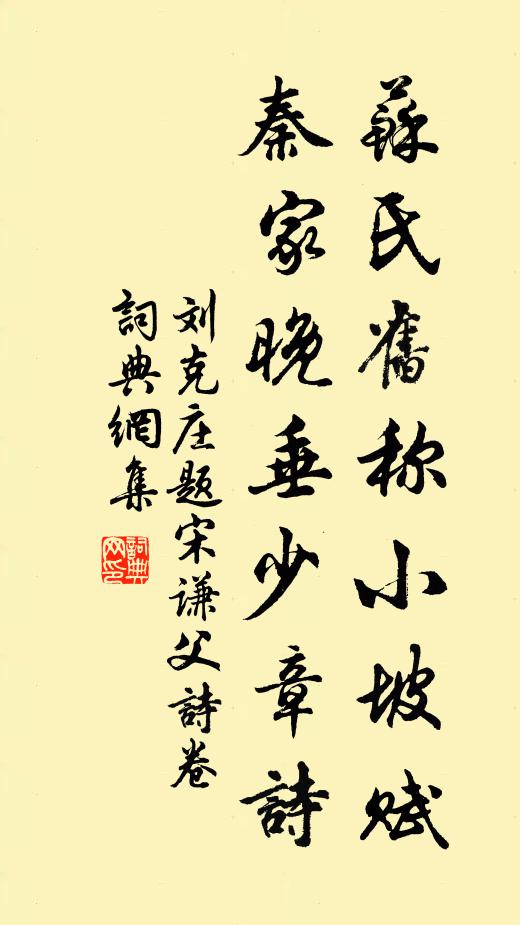 蘇氏舊称小坡赋
秦家晚垂少章詩
刘克庄題宋谦父詩卷
詞典網集
詞典网印